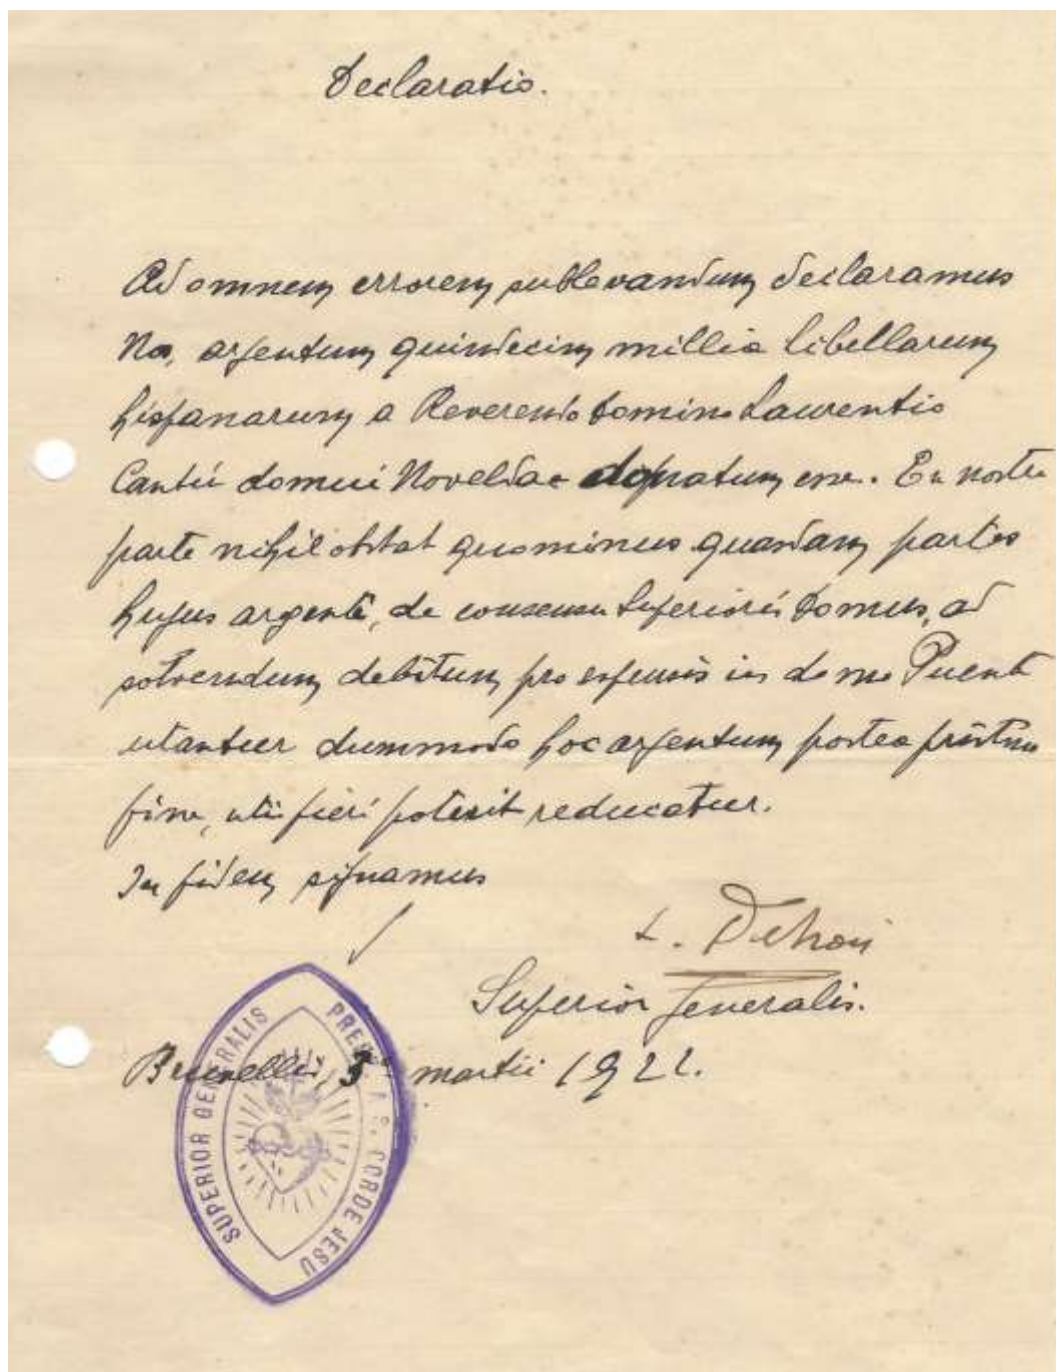 Declaratio.
Ad omnem errorem sublevandum declaramus
Nos, argentum quindecim millia libellarum
hispanarum a Reverendo Domino Laurentio
Cantú domui Noveldae donatum esse. Ex nostra
parte nihil obstat quominus quandam partes
hujus argenti, de consensu Superioris Domus, ad
solvendum debitum pro expensis in domo Puente
utantur dummodo hoc argentum postea pristino
fine, uti fieri poterit reducatur.
In fidem signamus
L. Dehon
Superior Generalis.
Bruxellis, 3 martii 1922.
SUPERIOR GENERALIS
CORDE JESU